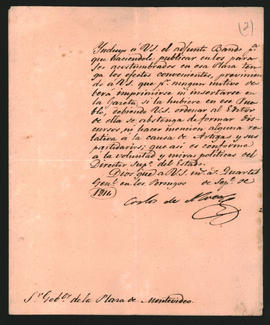 (2)
Incluyo a V.S. el adjunto Bando p.ª
que haciendole publicar en los para-
ges acostumbrados en esa Plaza ten-
ga los efectos convenientes, previnien-
do a V.S. que p.r ningun motivo de-
bera imprimirse ni insertarse en
la Gazeta, si la hubiere en ese Pue-
blo, debiendo V.S. ordenar al Editor
de ella se abstenga de formar dis-
cursos, ni hacer mencion alguna re-
lativa a la causa de Artigas y sus
partidarios; que asi es conforme
a la voluntad y miras politicas del
Director Sup.º del Estado.
Dios gue a V.S. m.s a.s Quartel
Gen.l en los de Sep.e de
1814.
Carlos de Alvear
S.r Gob.or de la Plaza de Montevideo